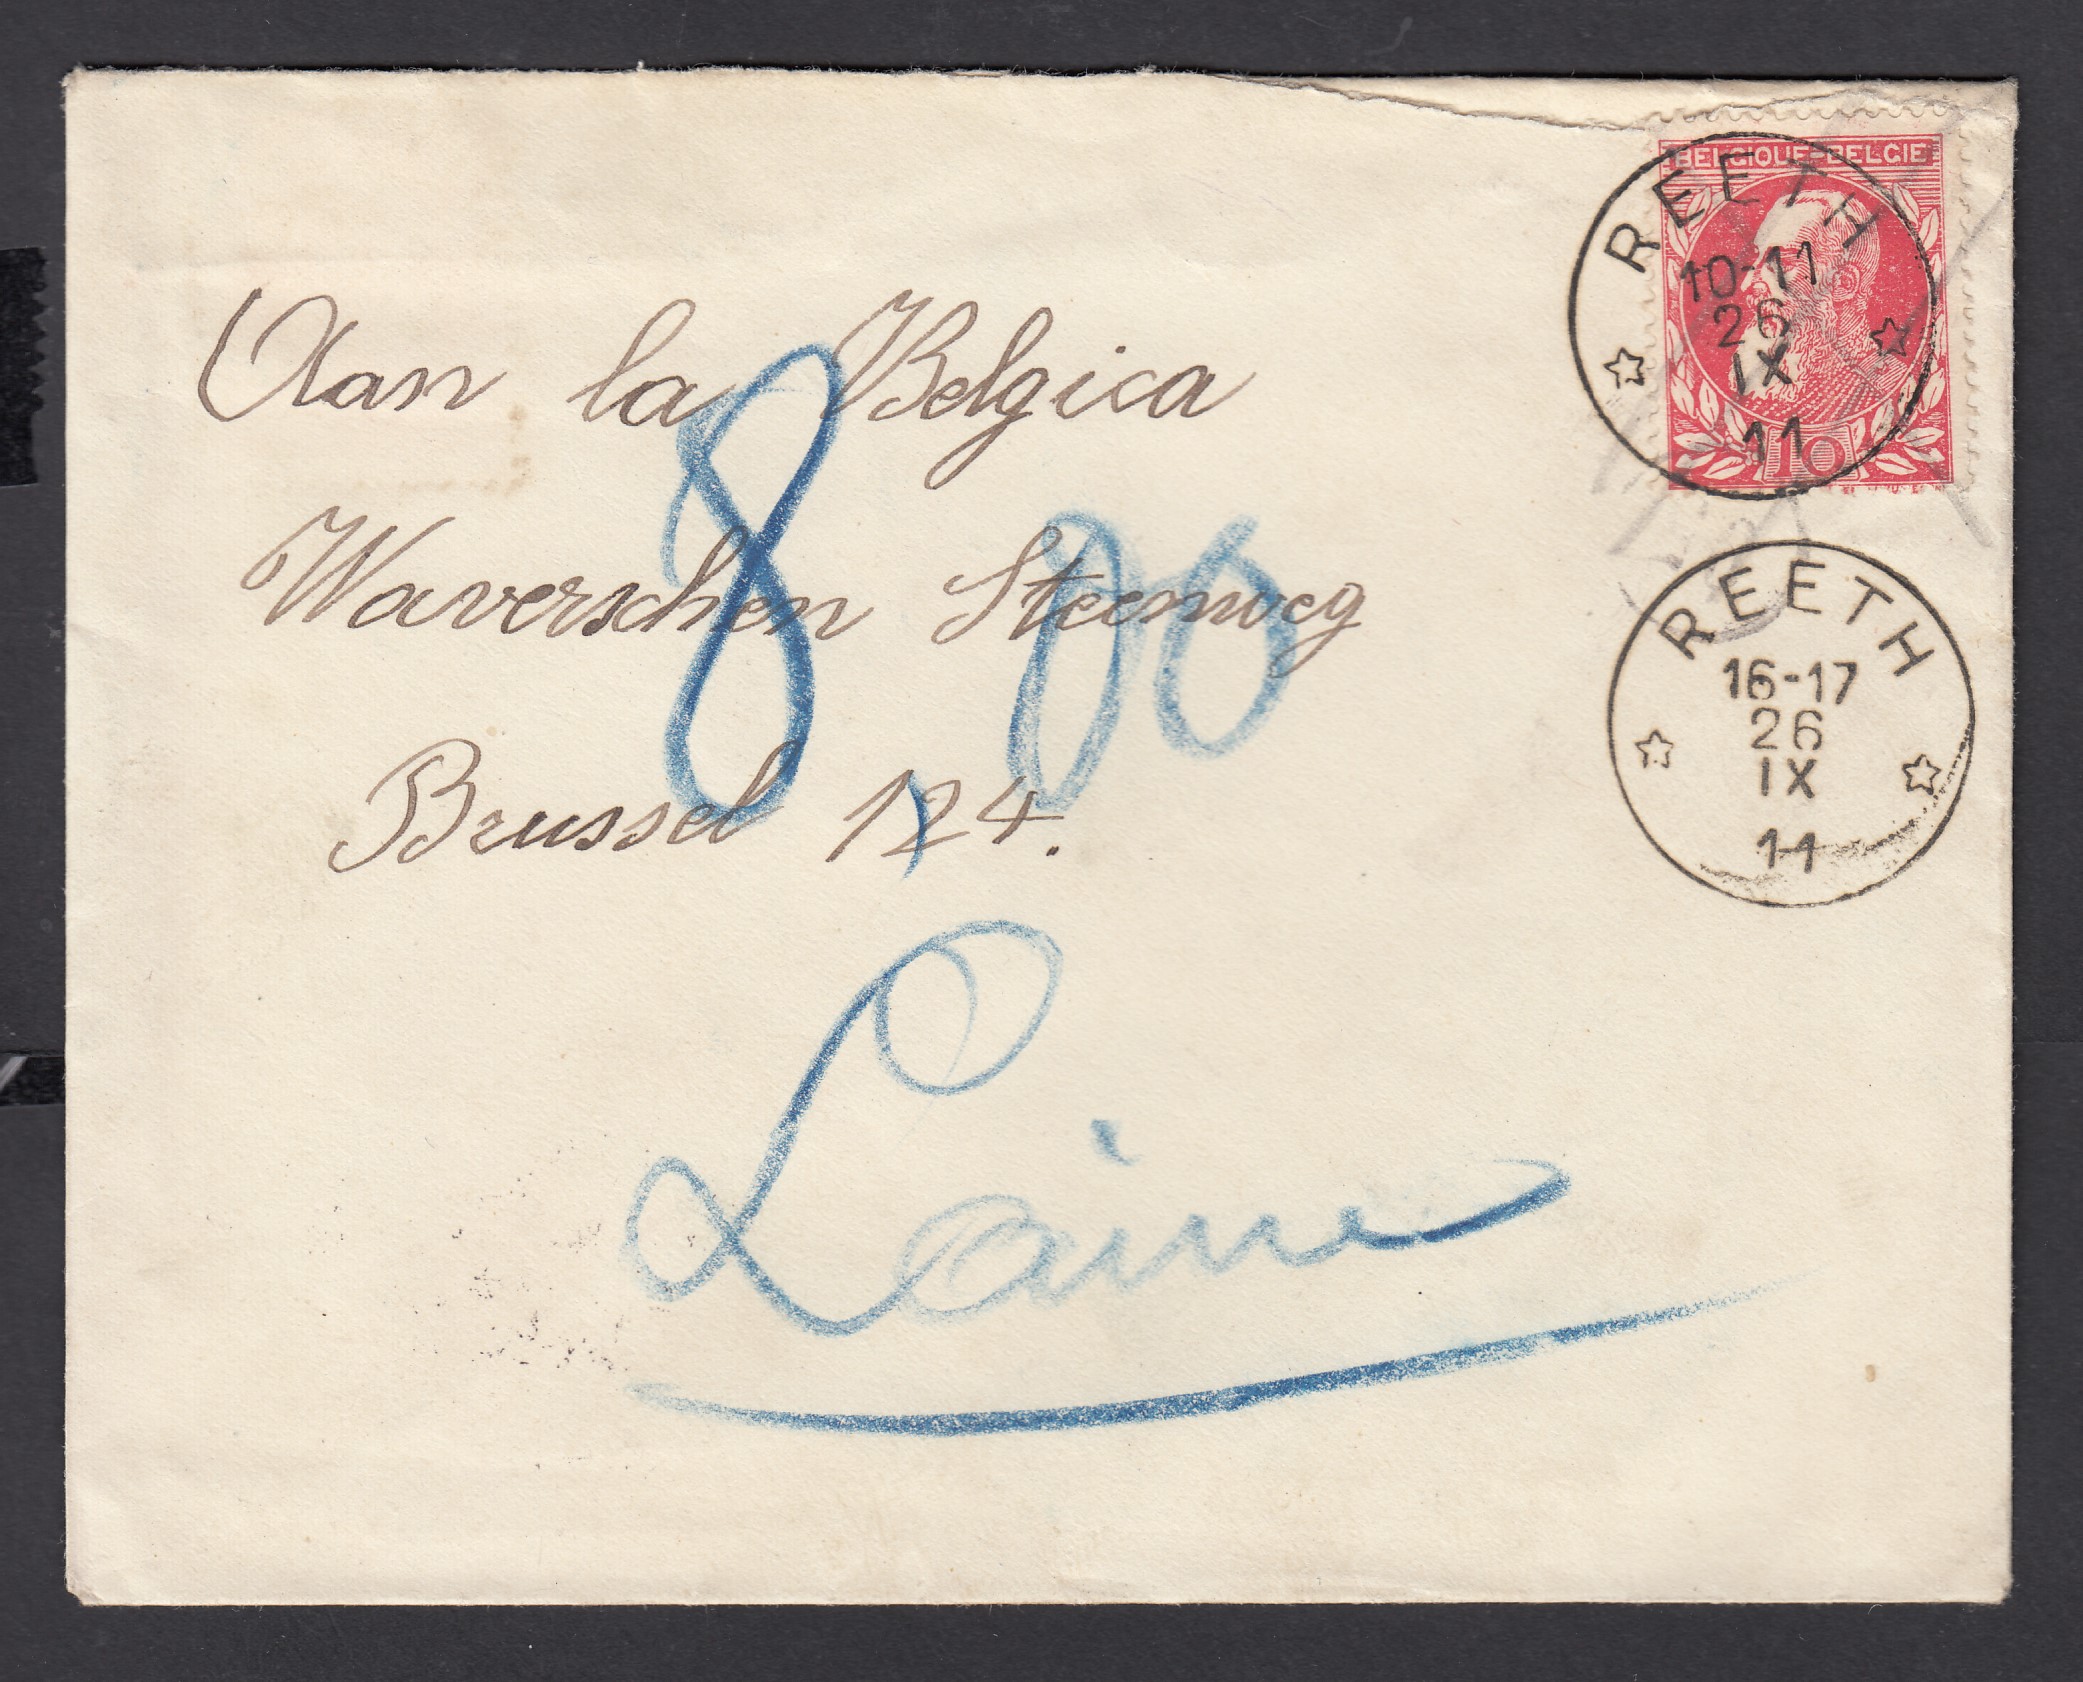 BELGIQUE-BELGIE
REETH
10-11
26
IX
11
10
Aan la Belgica
Waverschen Steenweg
Brussel 124.
8 00
REETH
16-17
26
IX
11